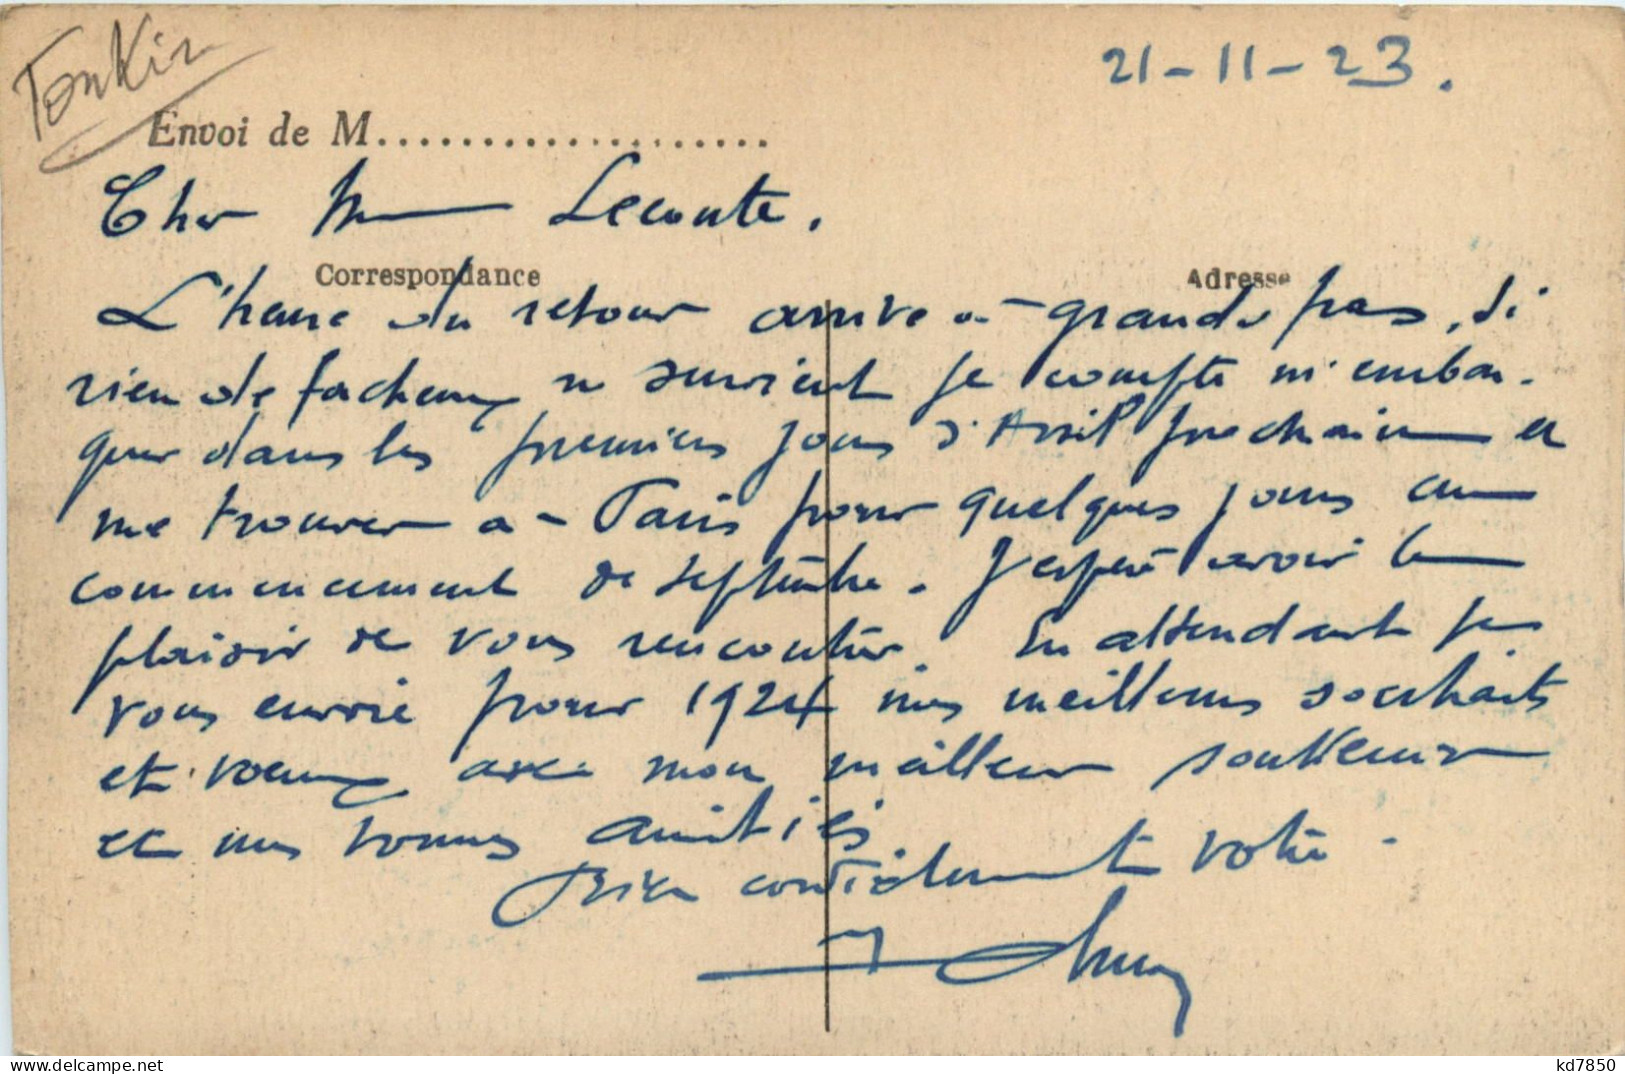 Tonkin
21-11-23.
Envoi de M....................
Cher M Leconte,
Correspondance
Adresse
L'heure du retour arrive à grands pas, si
rien de facheux ne survient je compte m'embar-
quer dans les premiers jours d'Avril prochain et
me trouver à Paris pour quelques jours au
commencement de septembre. J'espère avoir le
plaisir de vous rencontrer. En attendant je
vous envoie pour 1924 mes meilleurs souhaits
et voeux avec mon meilleur souvenir
et mes bonnes amitiés
Bien cordialement votre
kd7850